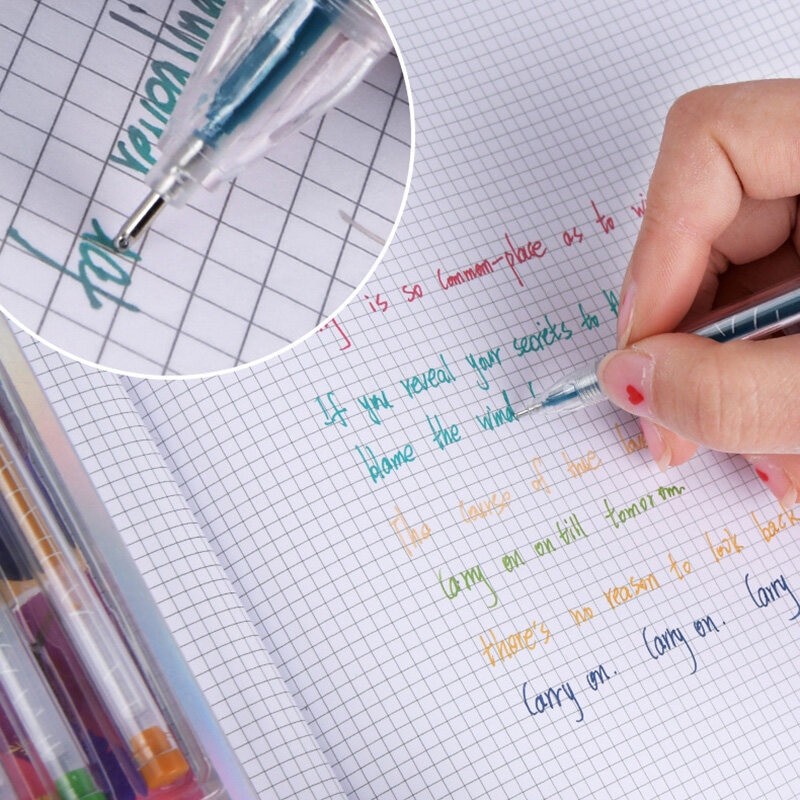 is so common-place as to
If you reveal your secrets to
blame the wind
The course of true
Carry on on till tomorrow.
there's no reason to look back
Carry on. Carry on. Carry